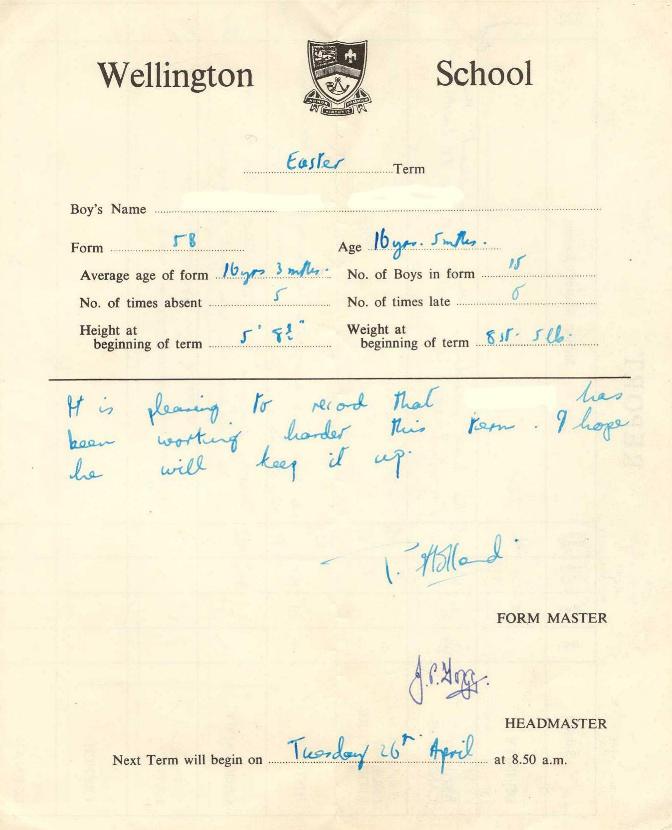 Wellington School
Easter Term
Boy's Name
Form 5B Age 16 yrs. 5 mths.
Average age of form 16 yrs 3 mths. No. of Boys in form 15
No. of times absent 5 No. of times late 0
Height at beginning of term 5' 8½" Weight at beginning of term 8 st. 5 lb.
It is pleasing to record that has
been working harder this term. I hope
he will keep it up.
T. Holland
FORM MASTER
HEADMASTER
Next Term will begin on Tuesday 26th April at 8.50 a.m.